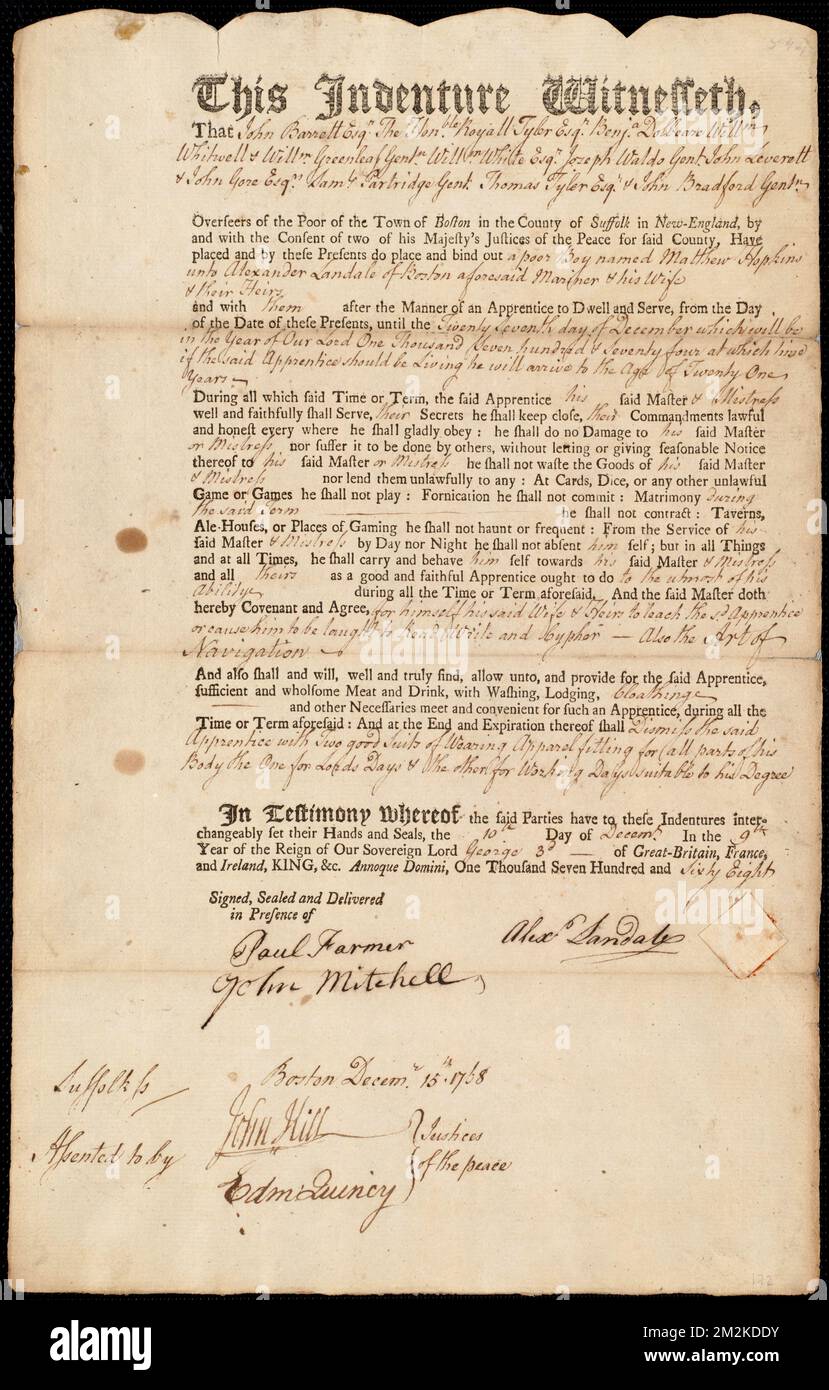 This Indenture Witnesseth,
That John Barrett Esqr. The Honble. Royall Tyler Esqr. Benja. Dolbeare Willm.
Whitwell & Willm. Greenleaf Gentn. Willm. White Esqr. Joseph Waldo Gent. John Leverett
& John Gore Esqrs. Saml. Partridge Gent. Thomas Tyler Esqr. & John Bradford Gentn.
Overseers of the Poor of the Town of Boston in the County of Suffolk in New-England, by
and with the Consent of two of his Majesty's Justices of the Peace for said County, Have
placed and by these Presents do place and bind out a poor Boy named Matthew Hopkins
unto Alexander Landale of Boston aforesaid Mariner & his Wife
& their Heirs
and with them after the Manner of an Apprentice to Dwell and Serve, from the Day
of the Date of these Presents, until the Twenty Seventh day of December which will be
in the Year of Our Lord One Thousand Seven hundred & Seventy four at which time
if the said Apprentice should be Living he will arrive to the Age of Twenty One
Years
During all which said Time or Term, the said Apprentice his said Master & Mistress
well and faithfully shall Serve, their Secrets he shall keep close, their Commandments lawful
and honest every where he shall gladly obey: he shall do no Damage to his said Master
or Mistress nor suffer it to be done by others, without letting or giving seasonable Notice
thereof to his said Master or Mistress he shall not waste the Goods of his said Master
& Mistress nor lend them unlawfully to any: At Cards, Dice, or any other unlawful
Game or Games he shall not play: Fornication he shall not commit: Matrimony during
the said Term he shall not contract: Taverns,
Ale-Houses, or Places of Gaming he shall not haunt or frequent: From the Service of his
said Master & Mistress by Day nor Night he shall not absent him self; but in all Things
and at all Times, he shall carry and behave him self towards his said Master & Mistress
and all theirs as a good and faithful Apprentice ought to do to the utmost of his
Abilidye during all the Time or Term aforesaid. And the said Master doth
hereby Covenant and Agree, for himself his said Wife & Heirs to teach the sd. Apprentice
or cause him to be taught to Read Write and Cypher — Also the Art of
Navigation
And also shall and will, well and truly find, allow unto, and provide for the said Apprentice,
sufficient and wholsome Meat and Drink, with Washing, Lodging, Cloathinge
and other Necessaries meet and convenient for such an Apprentice, during all the
Time or Term aforesaid: And at the End and Expiration thereof shall Dismiss the said
Apprentice with Two good Suits of Wearing Apparel fitting for all parts of his
Body the One for Lords Days & the other for Working Days suitable to his Degree
In Testimony whereof, the said Parties have to these Indentures inter-
changeably set their Hands and Seals, the 10th Day of Decemr. In the 9th
Year of the Reign of Our Sovereign Lord George 3d — of Great-Britain, France,
and Ireland, KING, &c. Annoque Domini, One Thousand Seven Hundred and Sixty Eight
Signed, Sealed and Delivered
in Presence of
Paul Farmer
John Mitchell
Alexr. Landale
Suffolk ss
Boston Decemr. 15th. 1768
Assented to by
John Hill
Edm: Quincy
Justices
of the peace
172
alamy
Image ID: 2M2KDDY
www.alamy.com